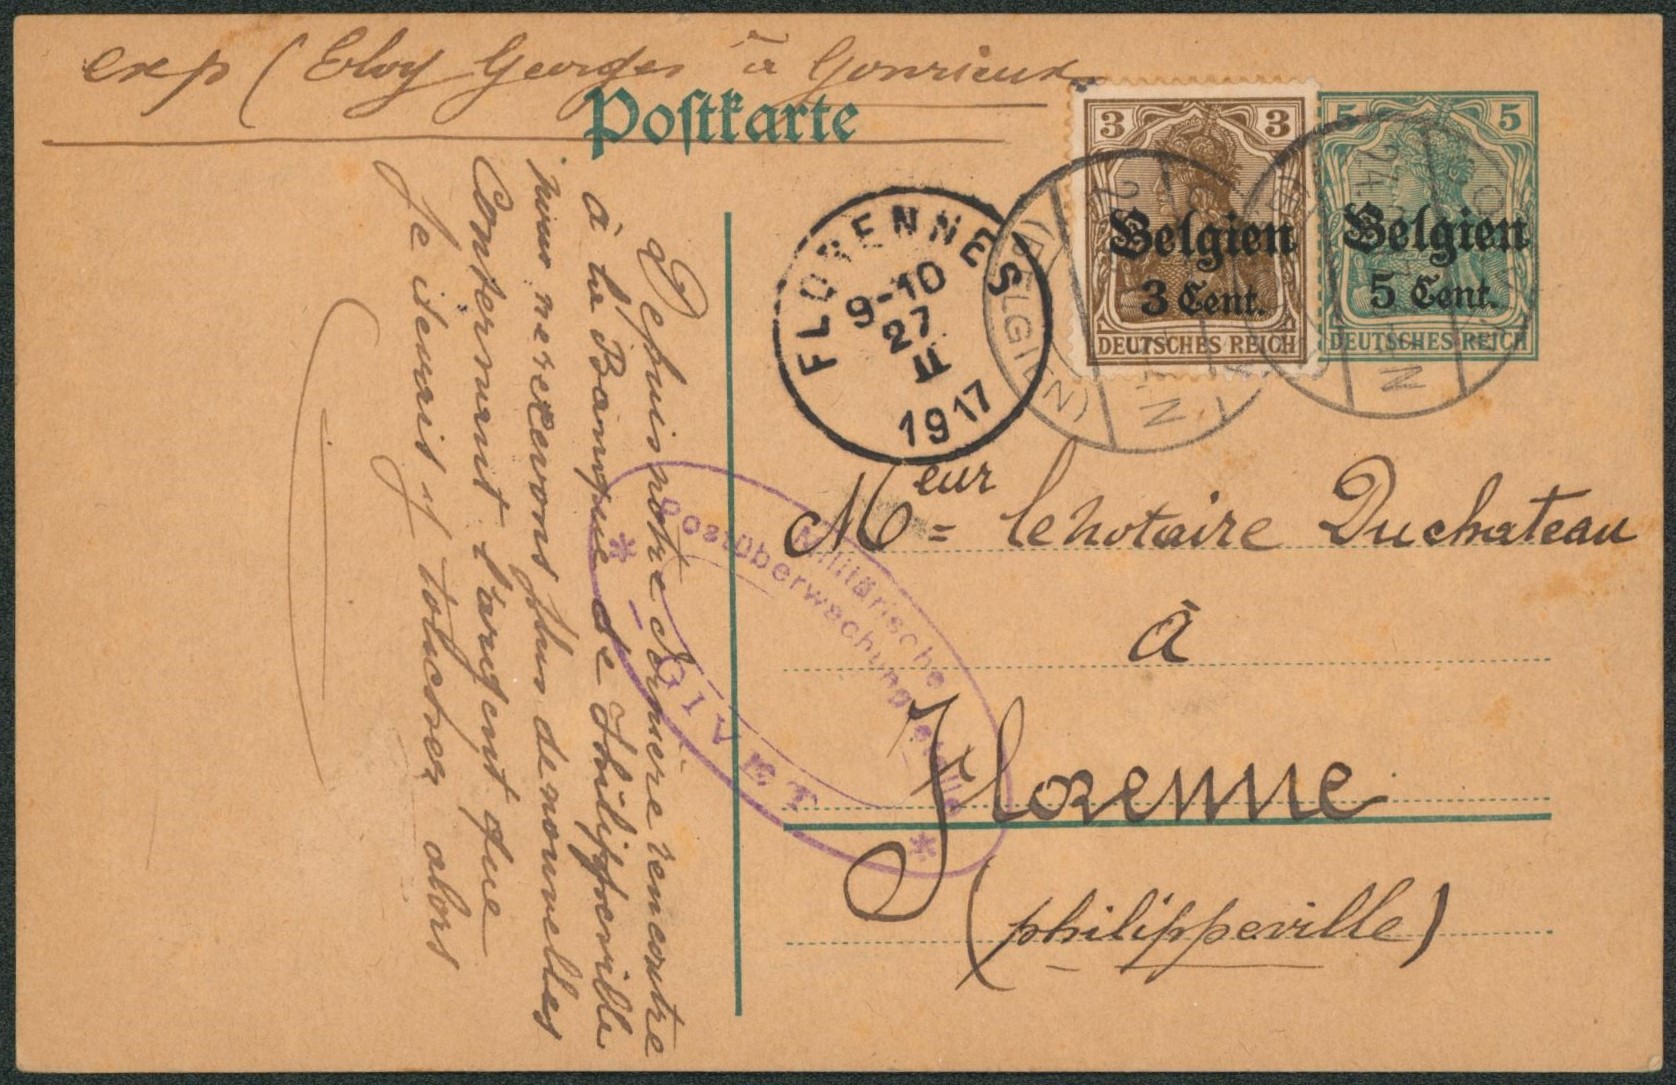 exp (Eloy Georges à Gonrieux
Postkarte
3 3
Belgien
3 Cent.
DEUTSCHES REICH
5 5
Belgien
5 Cent.
DEUTSCHES REICH
FLORENNES
9-10
27
II
1917
(BELGIEN)
Meur = le notaire Duchateau
à
Florenne
(philippeville)
Militärische
Postüberwachungsstelle
* GIVET *
Depuis notre dernière rencontre
à la Banque de Philippeville
nous ne recevons plus de nouvelles
Concernant l'argent que
Je devais y toucher alors